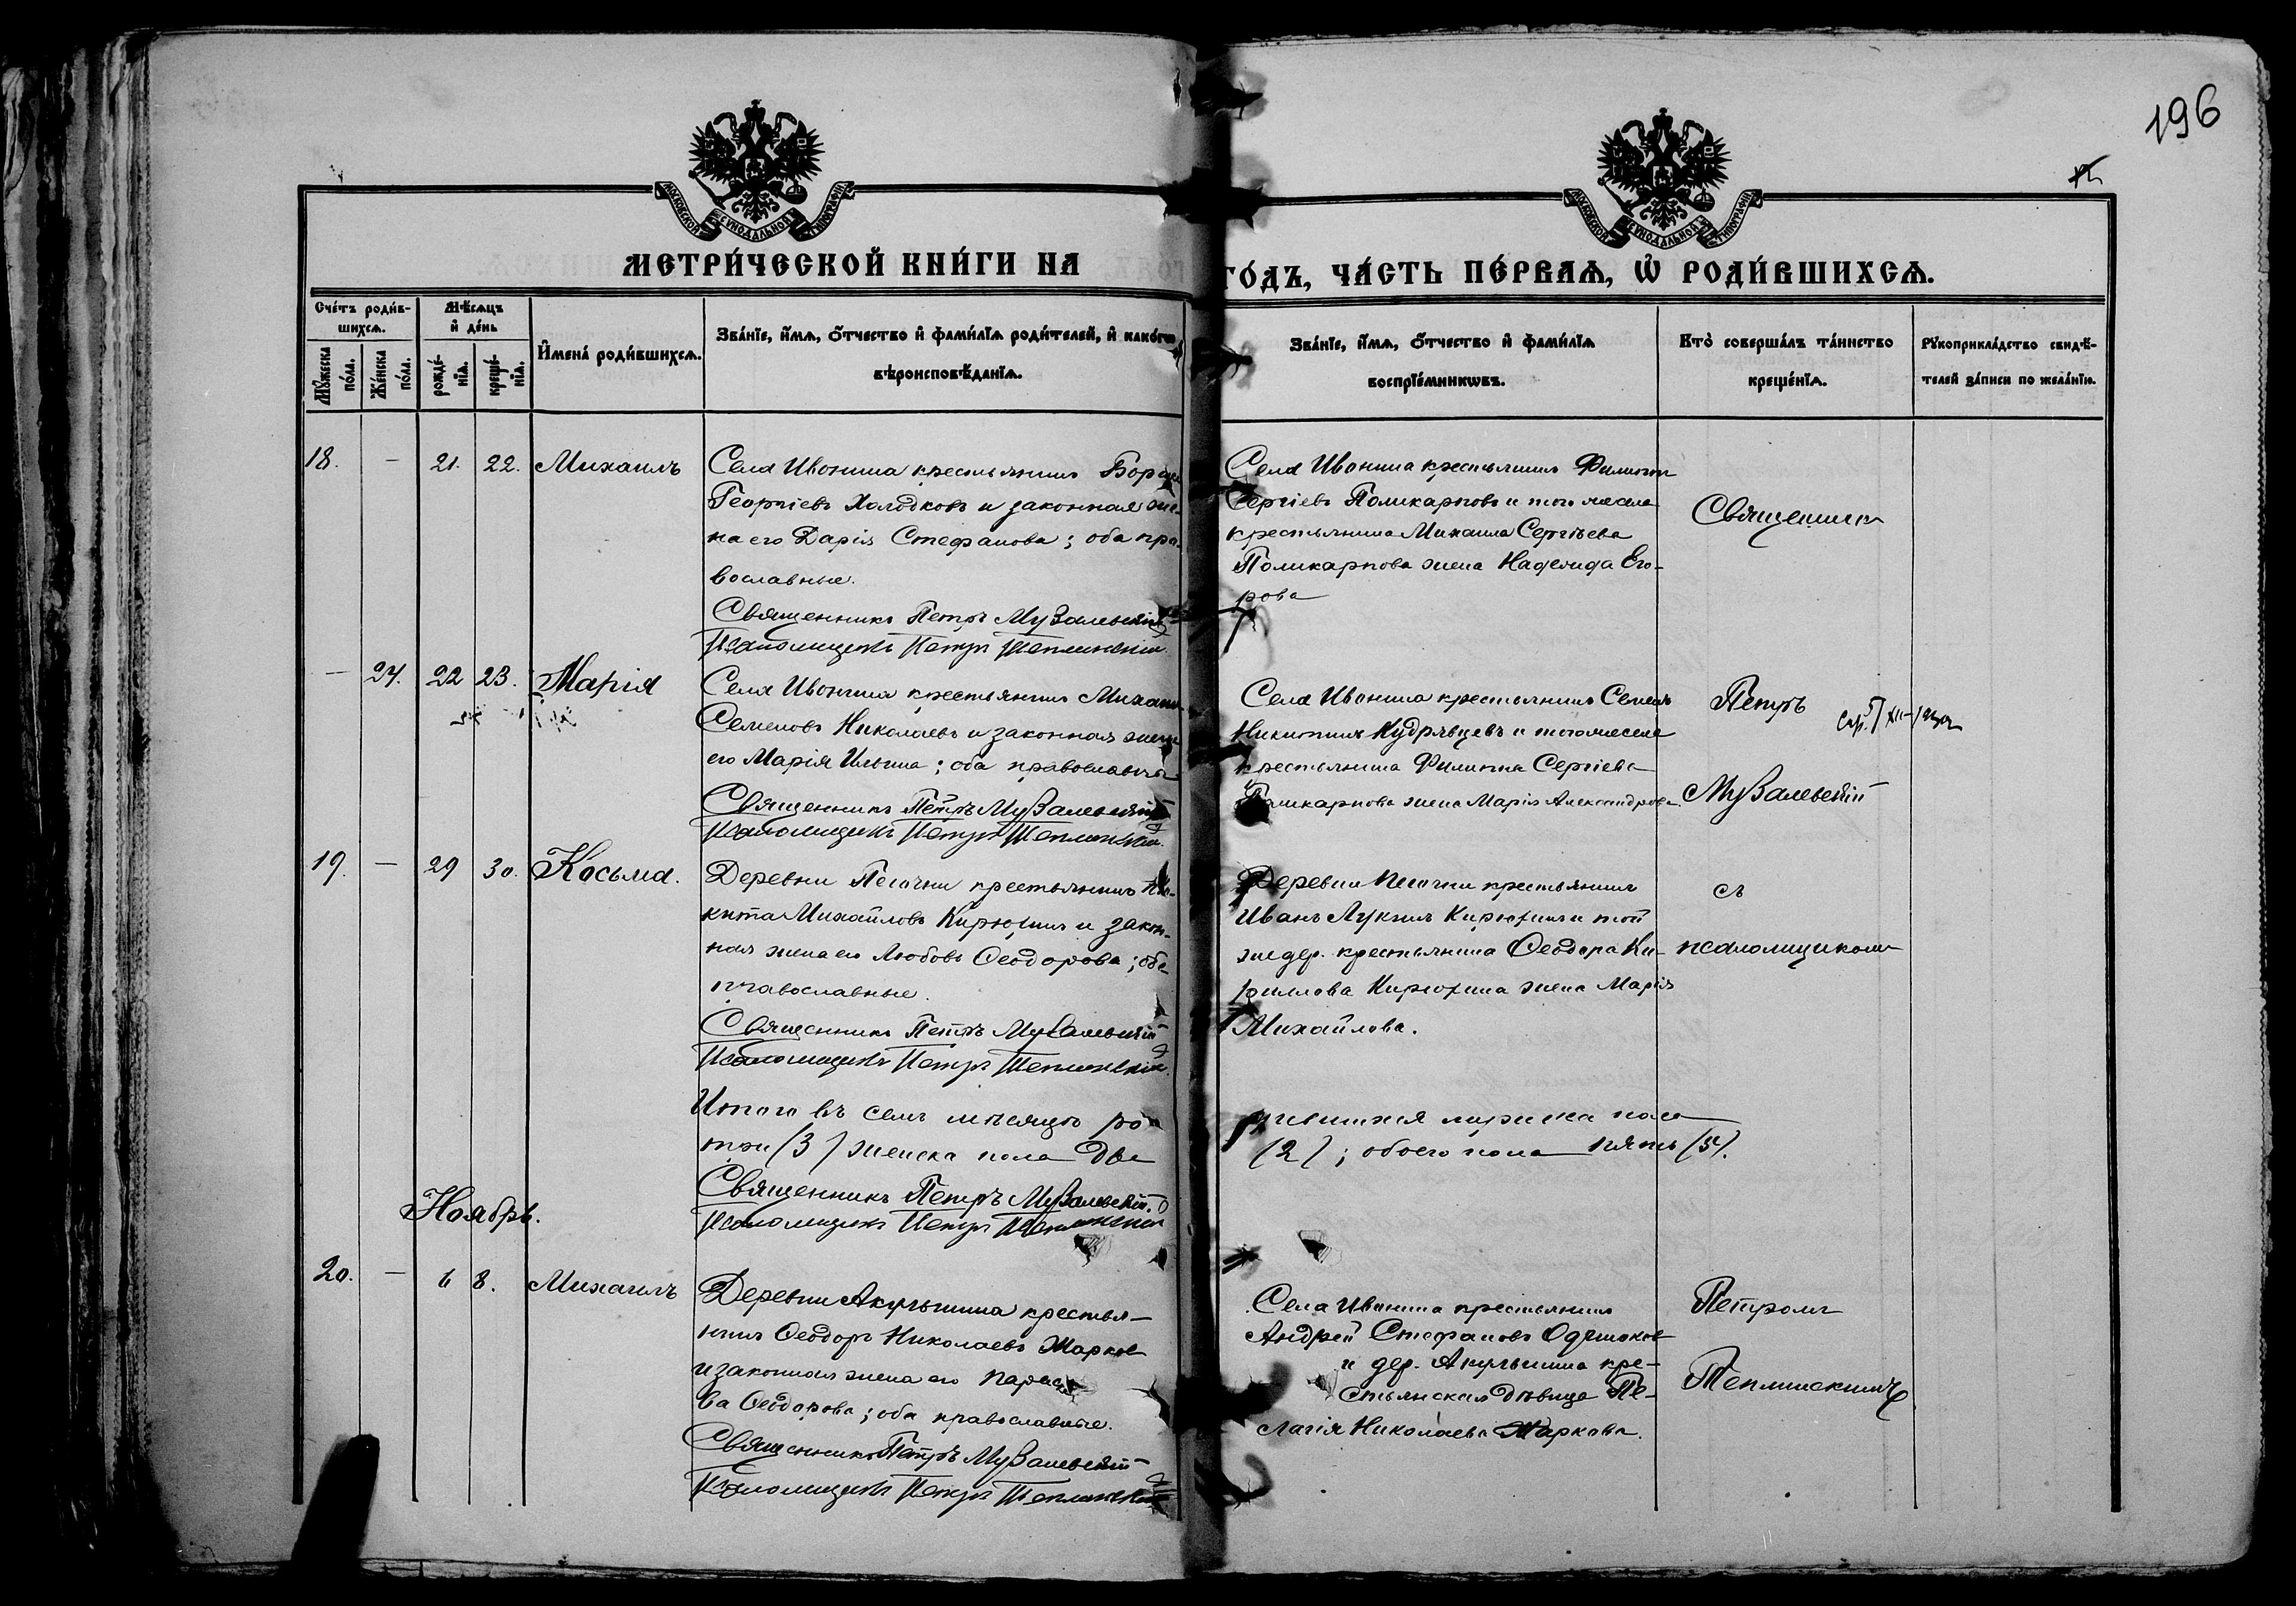 196
12
МОСКОВСКОЙ СѴНОДАЛЬНОЙ ТИПОГРАФІИ
МОСКОВСКОЙ СѴНОДАЛЬНОЙ ТИПОГРАФІИ
МЕТРИ́ЧЕСКОЙ КНИ́ГИ НА
ГО́ДЪ, ЧА́СТЬ ПЕ́РВАѦ, Ѡ РОДИ́ВШИХСѦ.
Сче́тъ роди́в-
шихсѧ.
Мѣ́сѧцъ
и де́нь
Мꙋжеска по́ла.
Же́нска по́ла.
рожде́-нїѧ.
креще́-нїѧ.
Имена́ роди́вшихсѧ.
Зва́нїе, и́мѧ, о́тчество и фами́лїѧ роди́телей, и како́гѡ
вѣроисповѣ́данїѧ.
Зва́нїе, и́мѧ, о́тчество и фами́лїѧ
воспрїе́мникѡвъ.
Кто̀ соверша́лъ та́инство
креще́нїѧ.
Рꙋкоприкла́дство свидѣ́-
телей за́писи по жела́нїю.
18. — 21. 22. Михаилъ
Села Ивонина крестьянинъ Борисъ
Георгіевъ Холодковъ и законная же-
на его Дарія Стефанова; оба пра-
вославные.
Священникъ Петръ Музалевскій
Псаломщикъ Петръ Теплинскій
Села Ивонина крестьянинъ Филиппъ
Сергіевъ Поликарповъ и того же села
крестьянина Михаила Сергѣева
Поликарпова жена Надежда Его-
рова
Священникъ
— 24. 22 23. Марія
Села Ивонина крестьянинъ Михаилъ
Семеновъ Николаевъ и законная жена
его Марія Ильина; оба православные
Священникъ Петръ Музалевскій
Псаломщикъ Петръ Теплинскій.
Села Ивонина крестьянинъ Семенъ
Никитинъ Кудрявцевъ и того же села
крестьянина Филиппа Сергіева
Поликарпова жена Марія Александрова.
Петръ
Музалевскій
19. — 29 30. Косьма.
Деревни Песочни крестьянинъ Ни-
кита Михайловъ Кирюхинъ и закон-
ная жена его Любовь Ѳеодорова; оба
православные.
Священникъ Петръ Музалевскій
Псаломщикъ Петръ Теплинскій.
Деревни Песочни крестьянинъ
Иванъ Лукинъ Кирюхинъ и той
же дер. крестьянина Ѳеодора Ки-
риллова Кирюхина жена Марія
Михайлова.
съ
псаломщикомъ
Итого въ семъ мѣсяцѣ ро
дившихся мужска пола
три (3) женска пола два
(2); обоего пола пять (5).
Священникъ Петръ Музалевскій.
Псаломщикъ Петръ Теплинскій
Ноябрь.
20. — 6 8. Михаилъ
Деревни Акульшина крестья-
нинъ Ѳеодоръ Николаевъ Жарковъ
и законная жена его Параске-
ва Ѳеодорова; оба православные.
Священникъ Петръ Музалевскій
Псаломщикъ Петръ Теплинскій
Села Ивонина крестьянинъ
Андрей Стефановъ
и дер. Акульшина кре-
стьянская дѣвица Пе-
лагія Николаева Жаркова.
Петромъ
Теплинскимъ